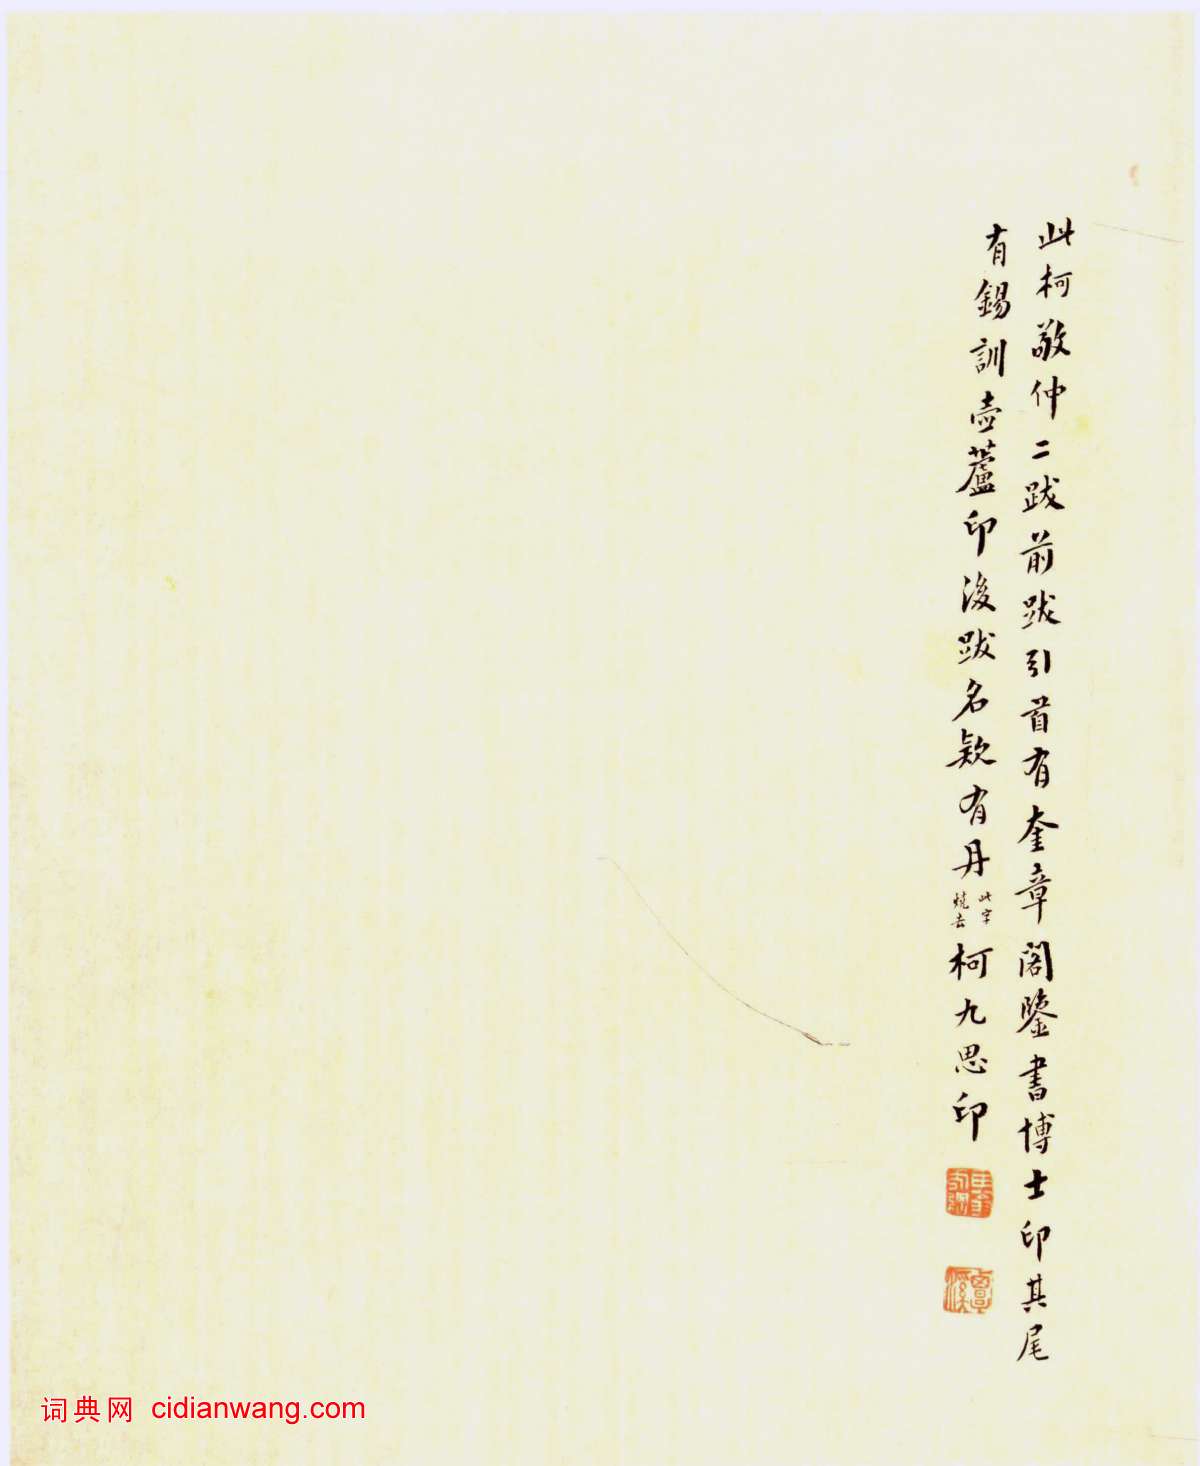 此柯敬仲二跋前跋引首有奎章閣鑒書博士印其尾
有錫訓壺蘆印後跋名欵有丹
此字
燒去
柯九思印
覃
溪
词典网 cidianwang.com